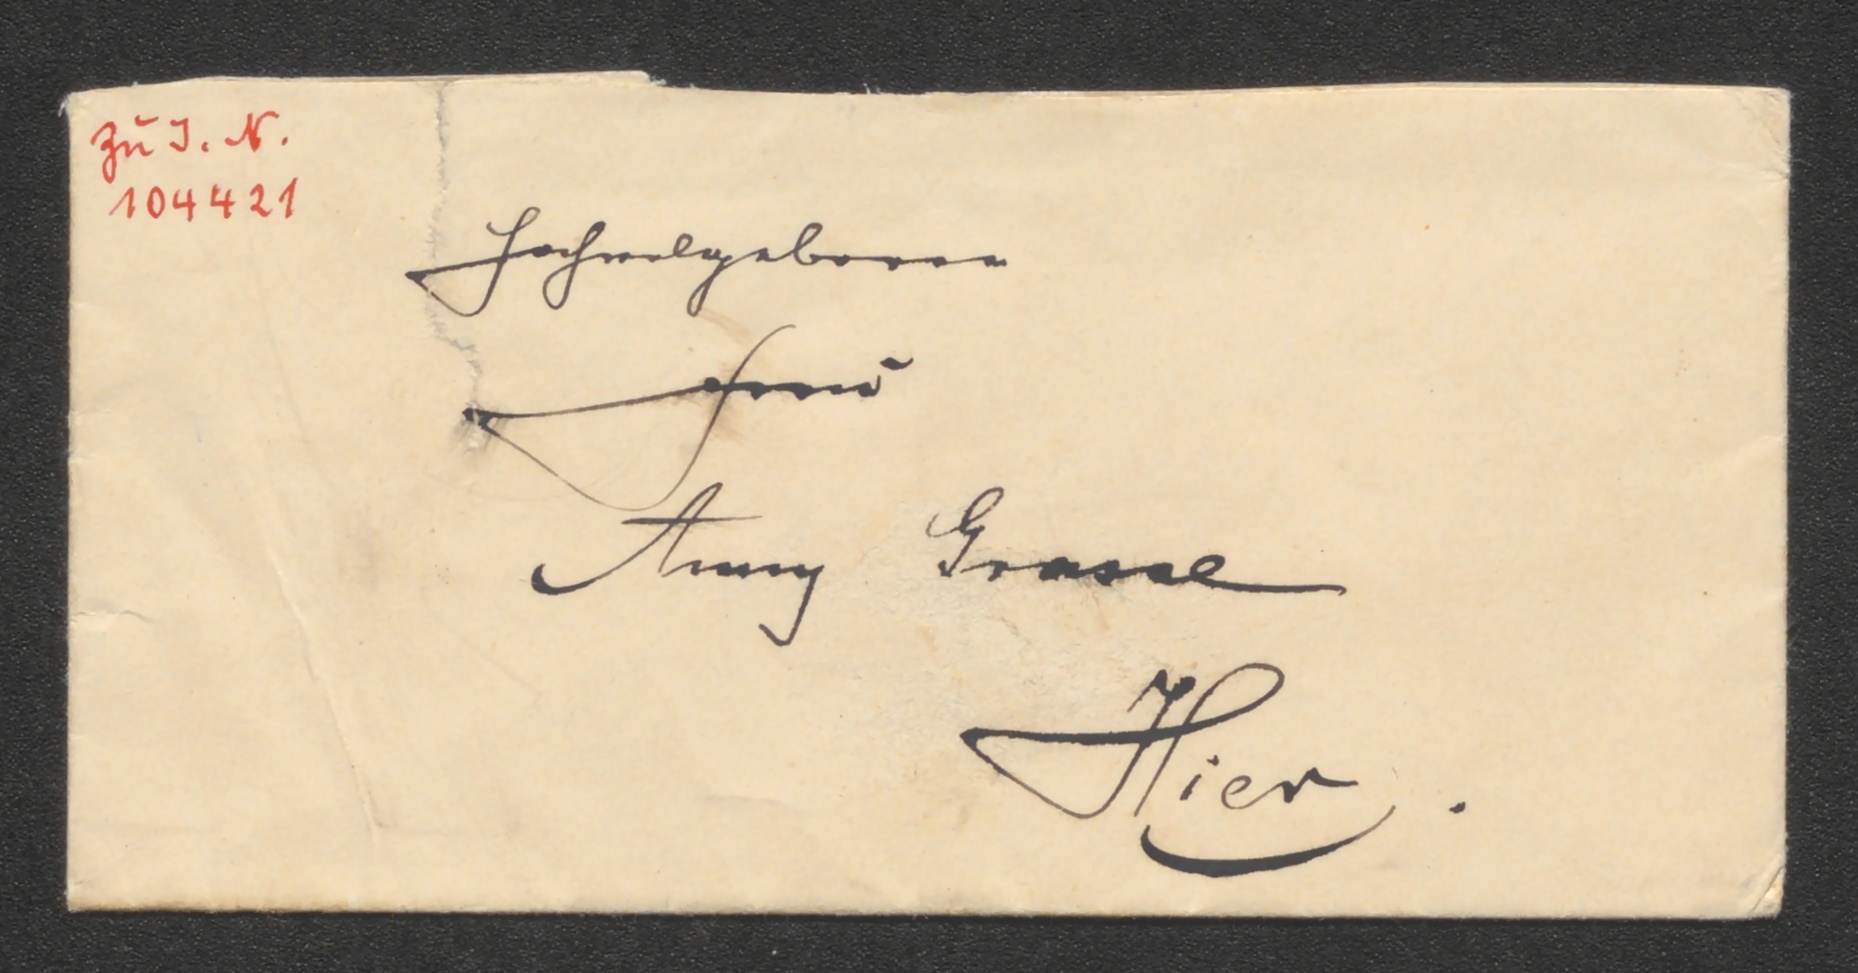 Zu I. N.
104421
Hochwolgeboren
Frau
Anny Grassl
Hier.